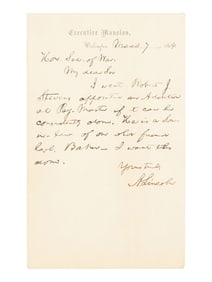 Executive Mansion,
Washington, March 7, 1864
Hon. Sec. of War.
My dear Sir
I want Robert J
Stevens appointed an Additional
Pay-Master if it can be
consistently done. He is a son-
in-law of our old friend
Col. Baker. I want this
done.
Yours truly
A. Lincoln